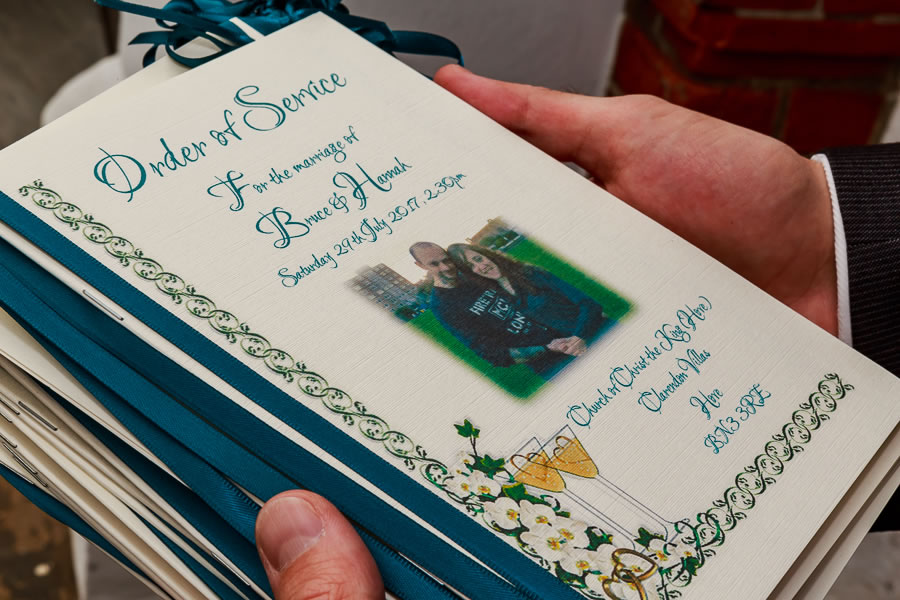 Order of Service
For the marriage of
Bruce & Hannah
Saturday 29th July 2017, 2.30pm
Church of Christ the King (Hove)
Clarendon Villas
Hove
BN3 3RE